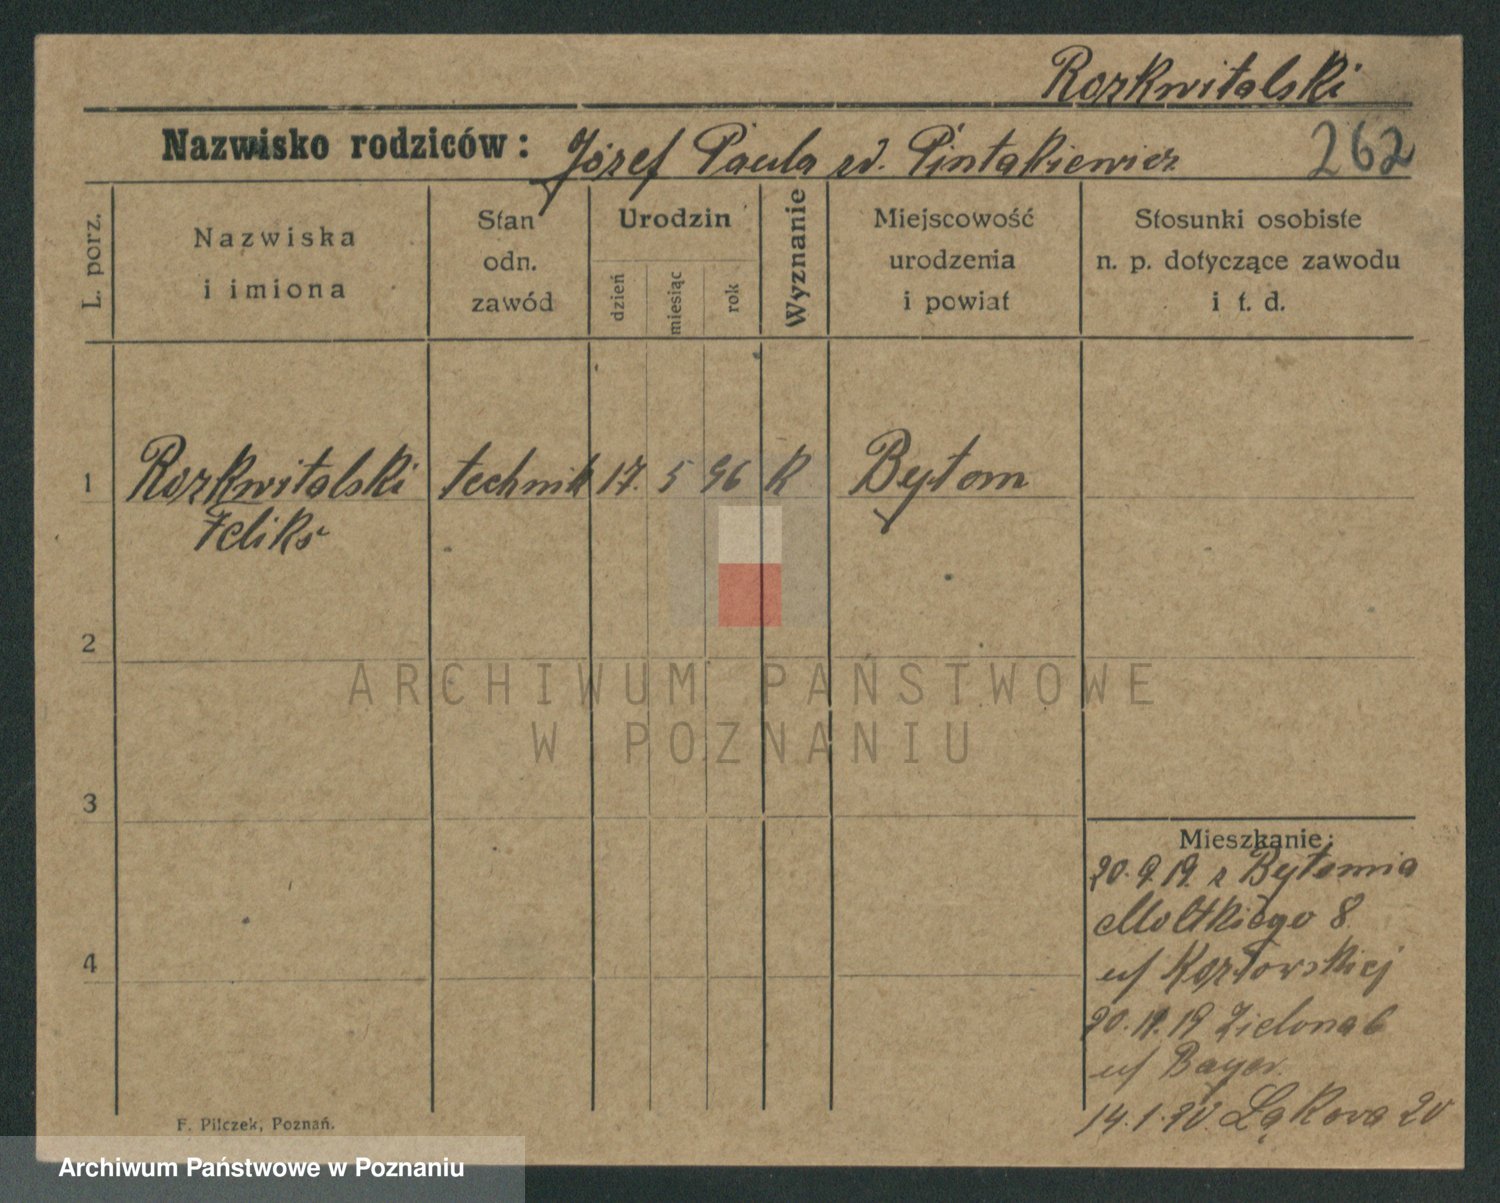 Rozkwitalski
Nazwisko rodziców: Józef Paula zd. Pintakiewicz 262
L. porz.
Nazwiska
i imiona
Stan
odn.
zawód
Urodzin
dzień
miesiąc
rok
Wyznanie
Miejscowość
urodzenia
i powiat
Stosunki osobiste
n. p. dotyczące zawodu
i t. d.
1 Rozkwitalski technik 17. 5 96 K Bytom
Feliks
2
3
4
Mieszkanie:
20.9.19. z Bytomia
Moltkiego 8
u/ Kozłowskiej
20.11.19 Zielona 6
u/ Bayer.
14.1.20. Łąkova 20
F. Pilczek, Poznań.
ARCHIWUM PAŃSTWOWE
W POZNANIU
Archiwum Państwowe w Poznaniu